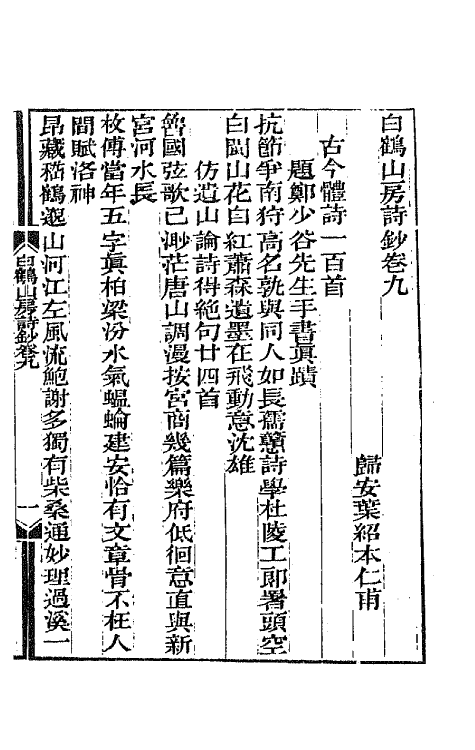 白鶴山房詩鈔卷九
歸安葉紹本仁甫
古今體詩一百首
題鄭少谷先生手書眞蹟
抗節爭南狩高名孰與同人如長孺戇詩學杜陵工郎署頭空
白閩山花自紅蕭森遺墨在飛動意沈雄
仿遺山論詩得絕句廿四首
魯國弦歌已渺茫唐山調漫按宮商幾篇樂府低徊意直與新
宮河水長
枚傅當年五字眞柏梁汾水氣蝹蜦建安恰有文章骨不枉人
間賦洛神
昂藏嵇鶴邈山河江左風流鮑謝多獨有柴桑通妙理過溪一
白鶴山房詩鈔卷九
一